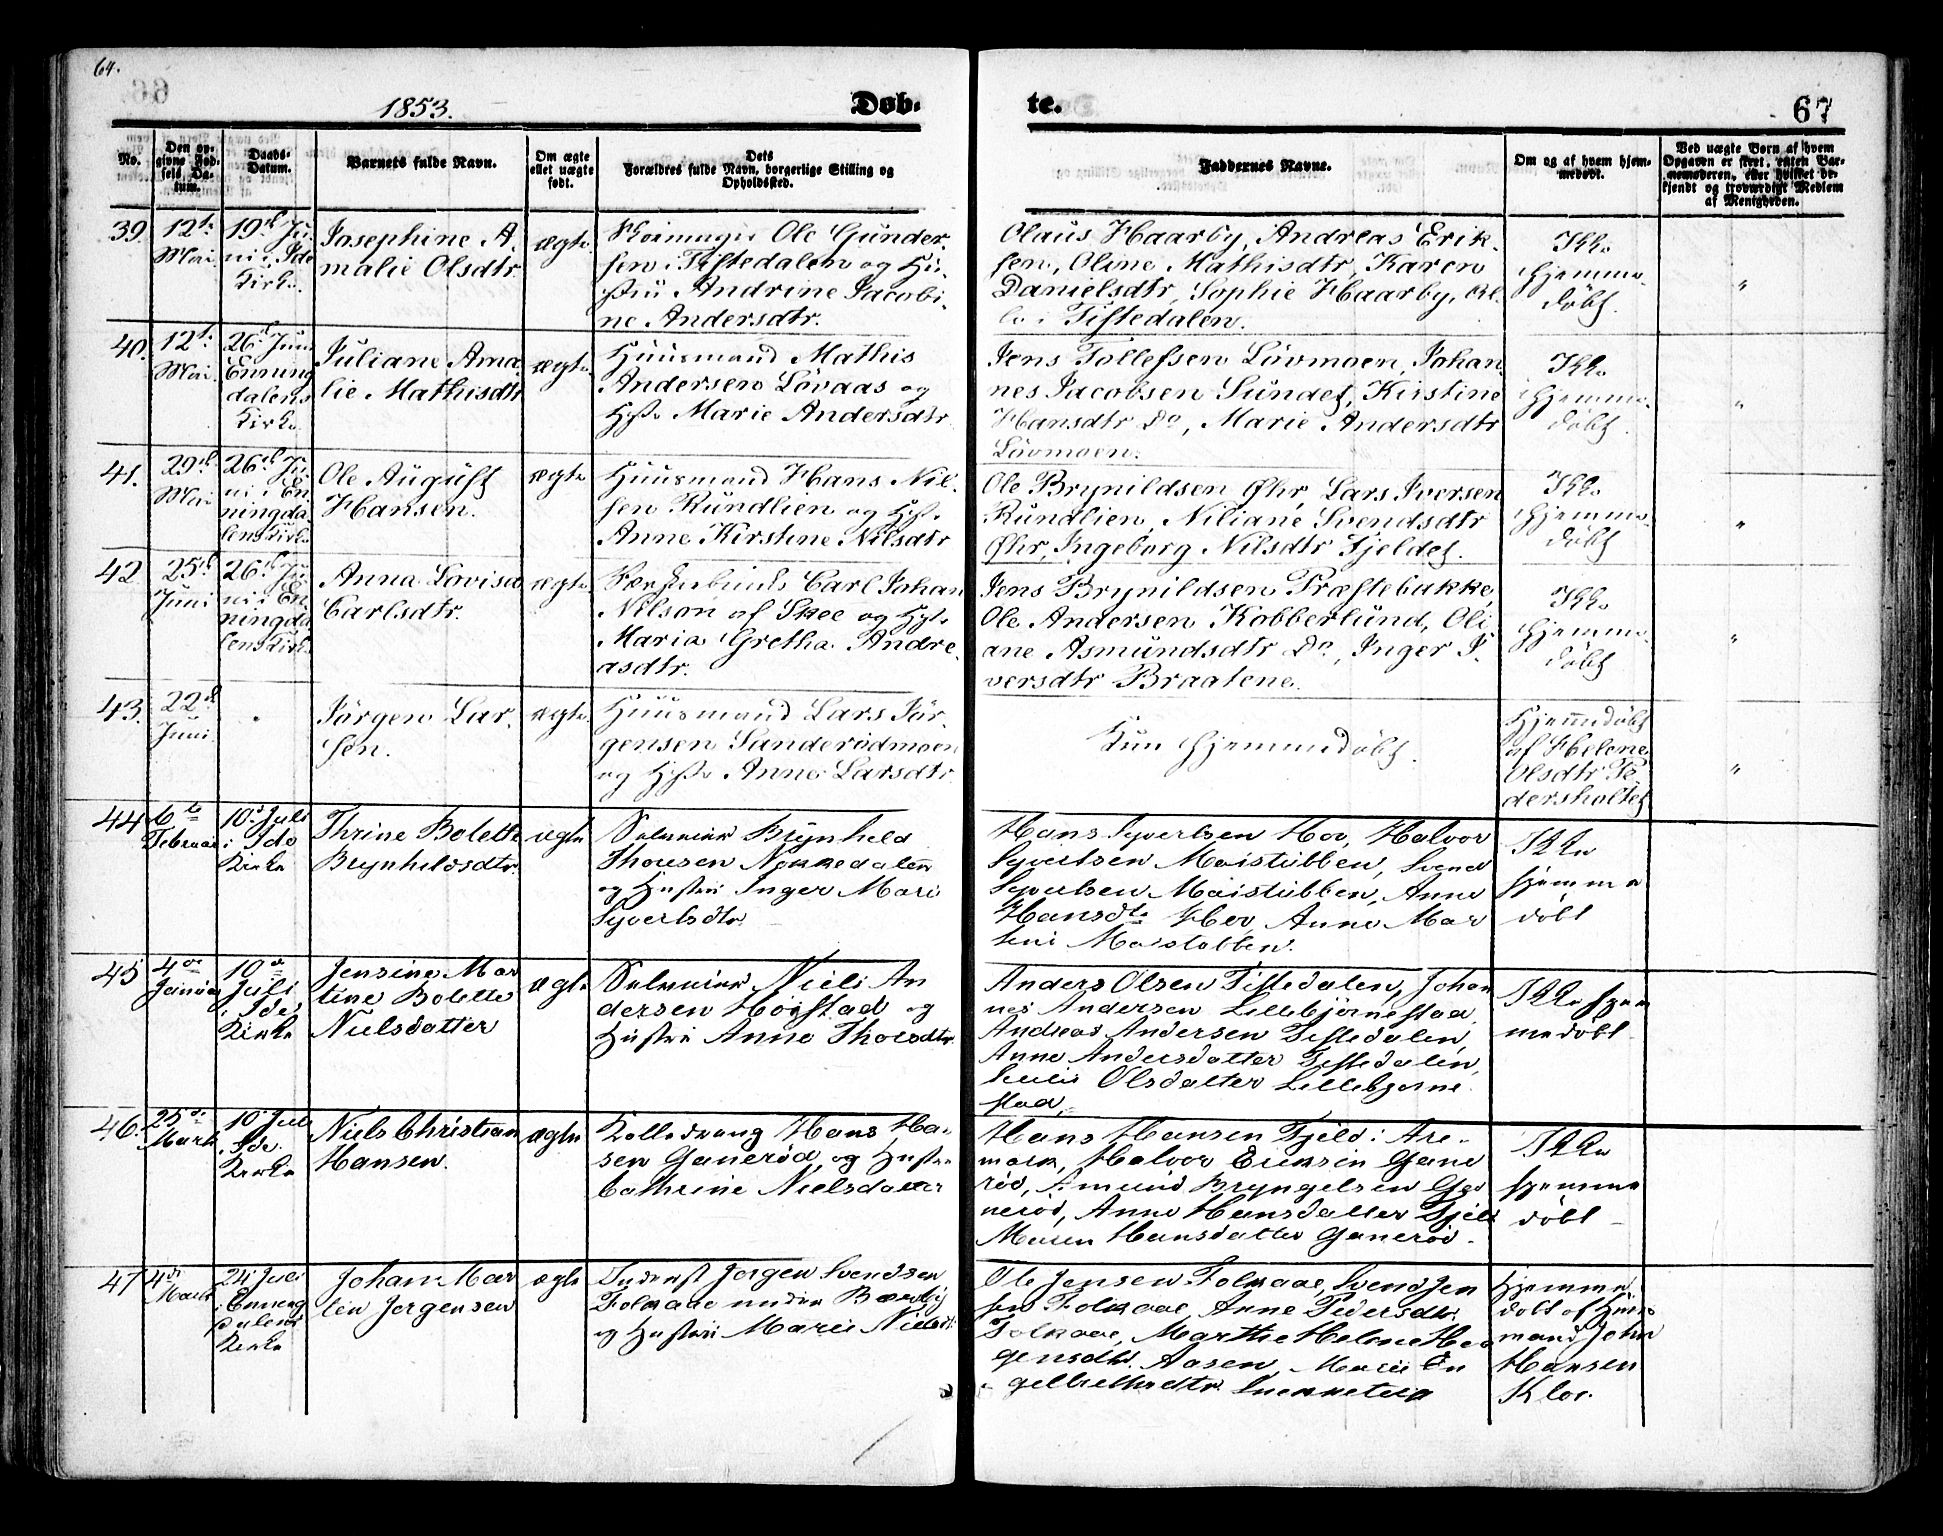 64.
1853.
Døb-
te.
67
No.
Den op-
givne Fød-
sels Da-
tum.
Daabs-
Datum.
Barnets fulde Navn.
Om ægte
ellet uægte
født.
Dets
Forældres fulde Navn, borgerlige Stilling og
Opholdssted.
Faddernes Navne.
Om og af hvem hjem-
medøbt.
Ved uægte Børn af hvem
Opgaven er skeet, enten Bar-
nemoderen, eller hvilket be-
kjendt og troværdigt Medlem
af Menigheden.
39.
12te
Mai.
19de Ju-
ni i Ide
Kirke.
Josephine A-
malie Olsdtr.
ægte.
Ole Gunder-
sen i Tistedalen og Hu-
stru Andrine Jacobi-
ne Andersdtr.
Olaus Haarby, Andreas Erik-
sen, Oline Mathisdtr, Karen
Danielsdtr, Sophie Haarby, al-
le i Tistedalen.
Ikke
hjemme-
døbt.
"
40.
12te
Mai.
26de Juni
Enning-
dalens
Kirke.
Juliane Ama-
lie Mathisdtr
ægte.
Huusmand Mathis
Andersen Løvaas og
Hstr. Marie Andersdtr.
Jens Tollefsen Løvmoen, Johan-
nes Jacobsen Sundet, Kirstine
Hansdtr Do, Marie Andersdtr
Løvmoen.
Ikke
hjemme-
døbt.
"
41.
29de
Mai.
26de Ju-
ni i En-
ningda-
lens Kirke
Ole August
Hansen.
ægte
Huusmand Hans Nil-
sen Rundlien og Hstr.
Anne Kirstine Nilsdtr
Ole Brynildsen Øhr, Lars Iversen
Rundlien, Niliane Svendsdtr
Øhr, Ingeborg Nilsdtr Fjeldet.
Ikke
hjemme-
døbt
"
42.
25de
Juni
26de Ju-
ni i En-
ningda-
lens Kirke.
Anna Lovisa
Carlsdtr.
ægte.
Carl Johan
Nilson af Skee og Hstr.
Maria Gretha Andre-
asdtr.
Jens Brynildsen Præstebakke,
Ole Andersen Kobberlund, Oli-
ane Asmundsdtr Do, Inger I-
versdtr Braatene.
Ikke
hjemme-
døbt
"
43.
22de
Juni.
Jörgen Lar-
sen.
ægte.
Huusmand Lars Jör-
gensen Sanderødmoen
og Hstr. Anne Larsdtr.
Kun hjemmedøbt.
Hjemmedøbt
af Helene
Olsdtr Fe-
dersholtet
"
44.
6te
Februar
10de Juli
i Ide
Kirke
Thrine Bolette
Brynhildsdtr.
ægte
Selveier Brynhild
Thoresen Nokkedalen
og Hustru Inger Marie
Syvertsdtr.
Hans Syvertsen Hov, Halvor
Syvertsen Maistubben, Svend
Syvertsen Maistubben, Anne
Hansdtr Hov, Anne Mar-
Maistubben.
Ikke
hjemme
døbt
45
4de
Januar
10de
Juli
i Ide
Kirke
Jensine Mar
tine Bolette
Nielsdatter
ægte
Selveier Niels An
dersen Hogstad og
Hustru Anne Thorsdtr.
Anders Olsen Tistedalen, Johan
nes Andersen Lillebjørnestad
Andreas Andersen Tistedalen,
Anne Andersdatter Tistedalen,
Olsdatter Lillebjørne-
stad.
Ikke hjem
medøbt
46.
25de
Marts
10de Juli
i Ide
Kirke
Niels Christian
Hansen.
ægte
Hans Han-
sen Ganerød, og Hustru
Cathrine Nielsdatter
Hans Hansen Fjeld i Are-
mark, Halvor Eriksen Gane
rød, Amund Bryngelsen Ga
nerød, Anne Hansdatter Fjeld
Maren Hansdatter Ganerød.
Ikke
hjemme
døbt
47
4de
Marts
24 Juli
i Enning
dalens
Kirke
Johan Mar
tin Jørgensen
ægte
Inderst Jørgen Svendsen
Folkaae under Bærby
og Hustru Marie Nielsdtr.
Ole Jensen Folkaae, Svend Jen
sen Folkaae, Anne Pedersdtr.
Folkaae, Marthe Helene
gensdtr. Aasen, Marie En
gelbrethsdtr
Hjemme
døbt af Huus
mand John
Hansen
Kloe.